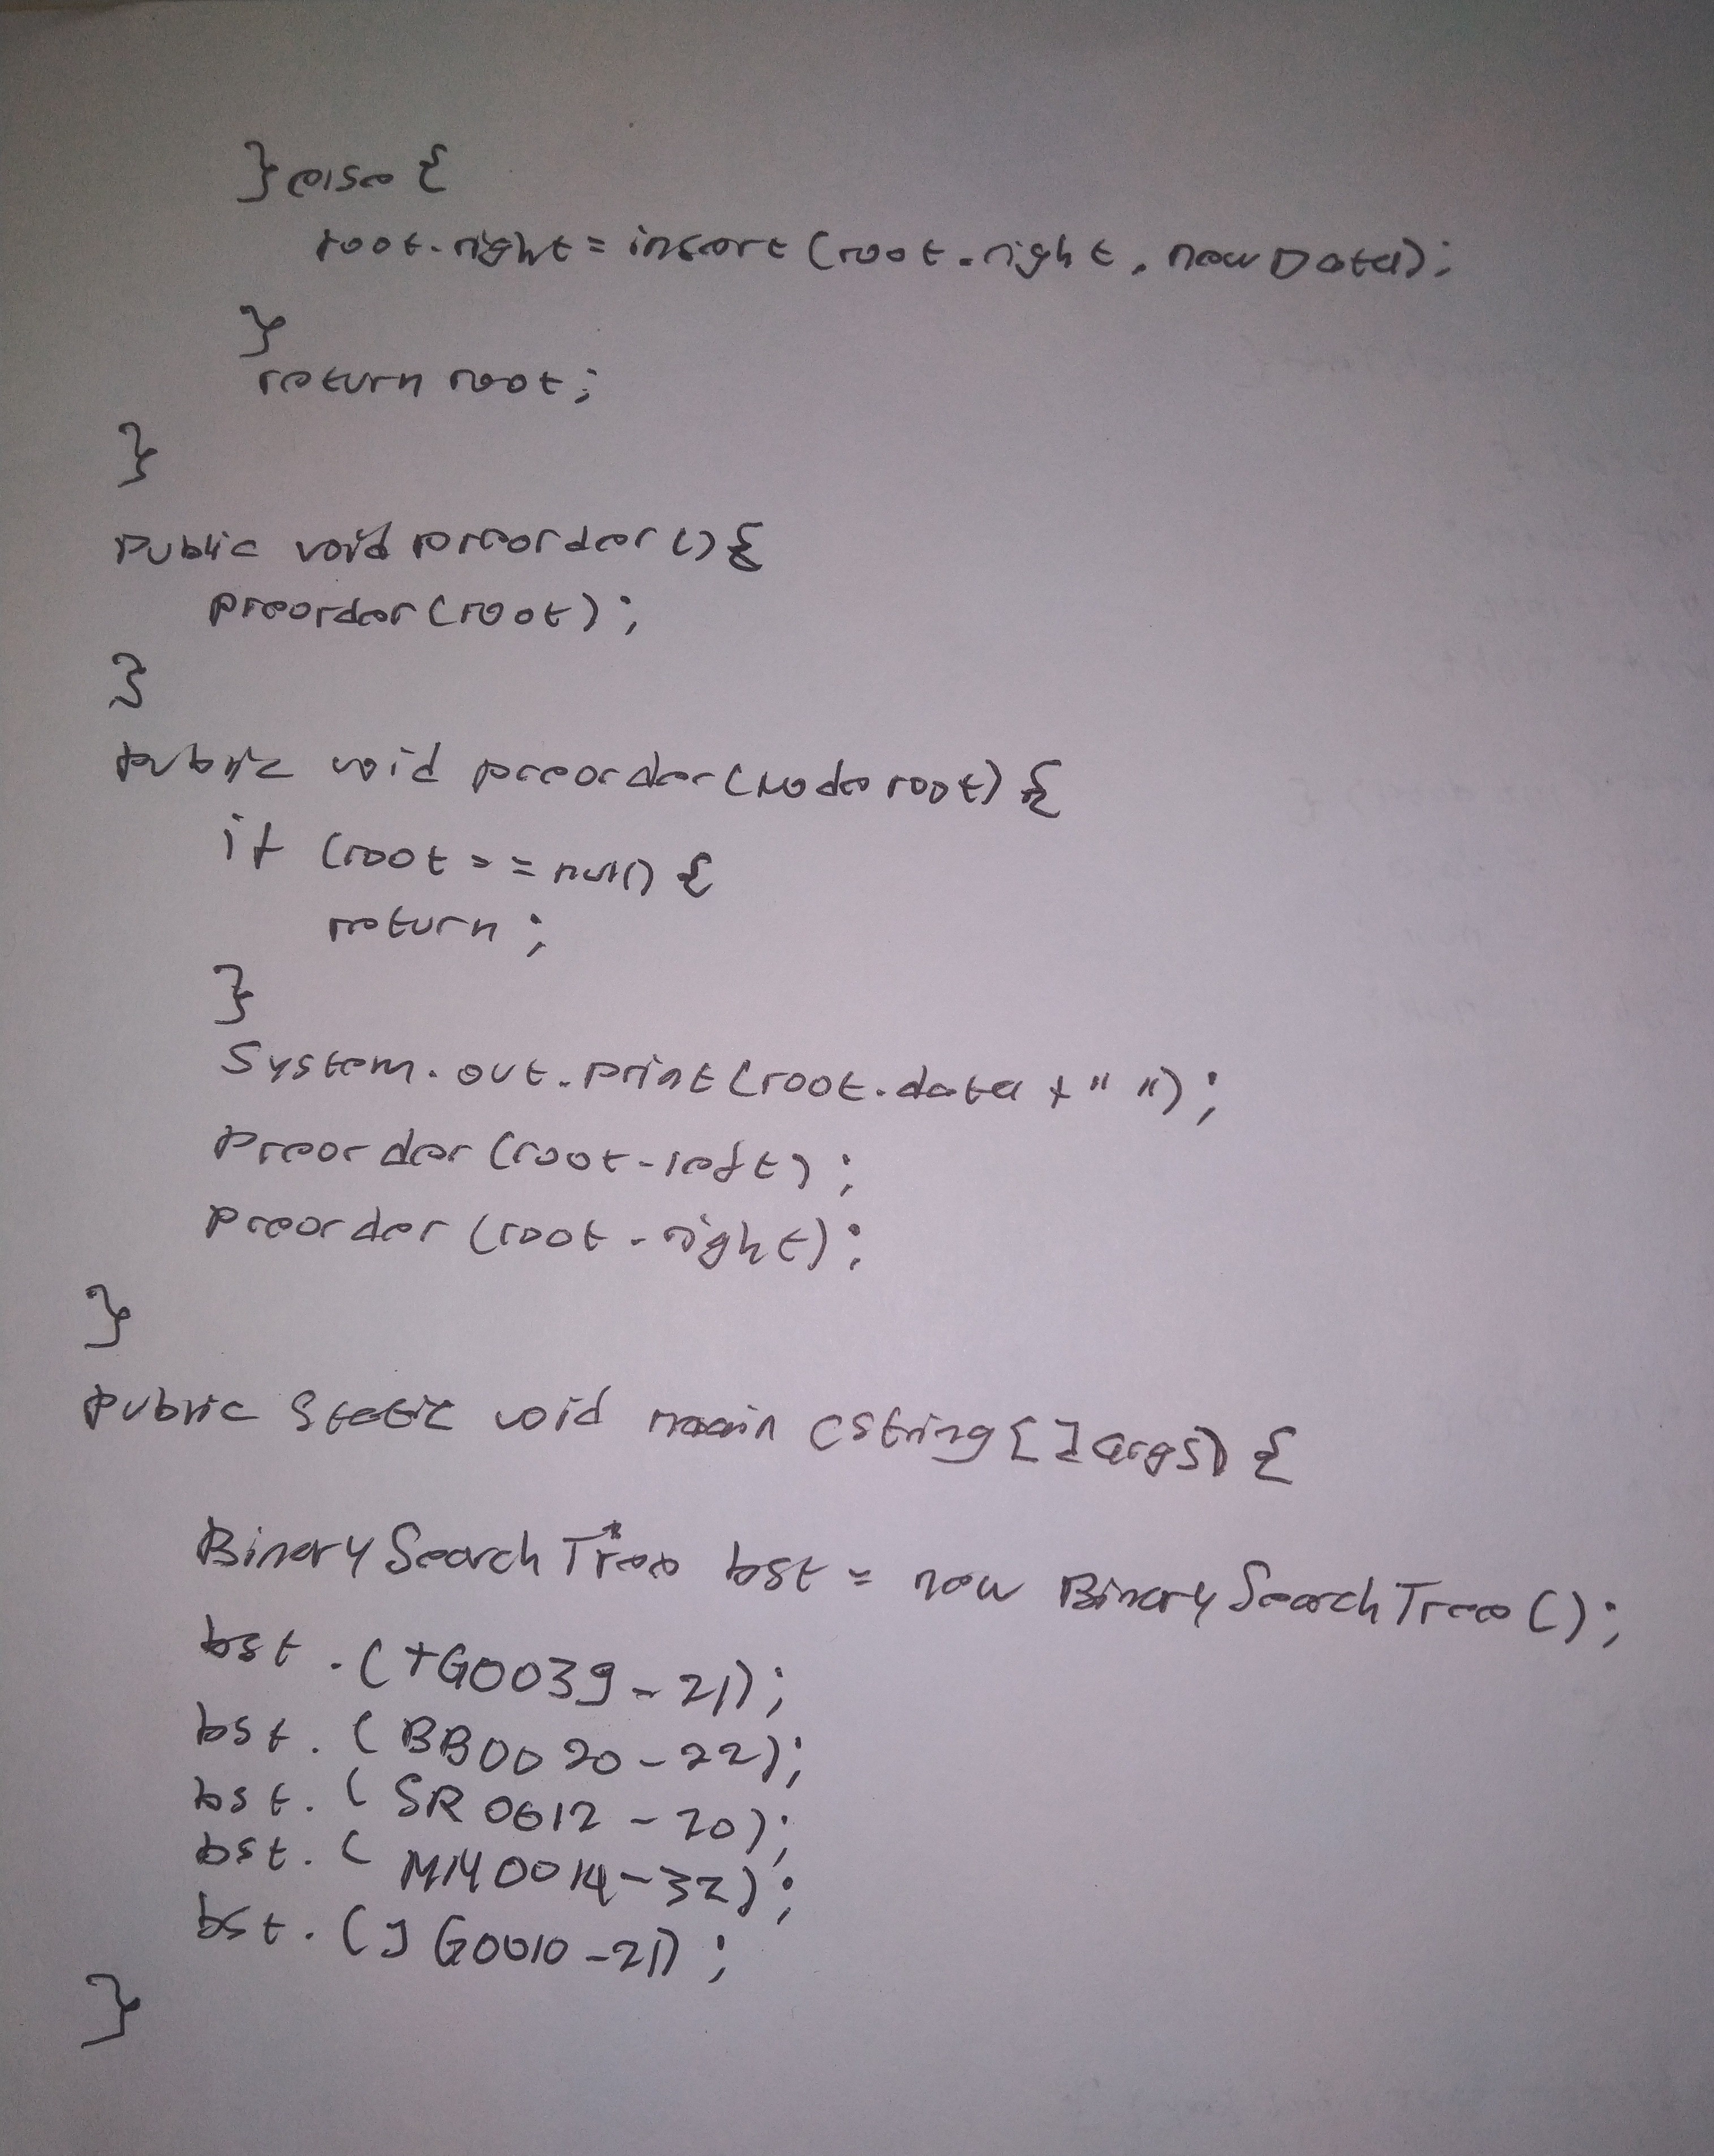 } else {
root.right = insert (root.right, newData);
}
return root;
}
public void preorder () {
preorder (root);
}
public void preorder (Node root) {
if (root == null) {
return;
}
System.out.print (root.data + " ");
preorder (root.left);
preorder (root.right);
}
public static void main (String [] args) {
BinarySearchTree bst = new BinarySearchTree ();
bst . (TG0039-21);
bst . (BB0020-22);
bst . (SR0612-20);
bst . (MM0014-32);
bst . (JG0010-21);
}